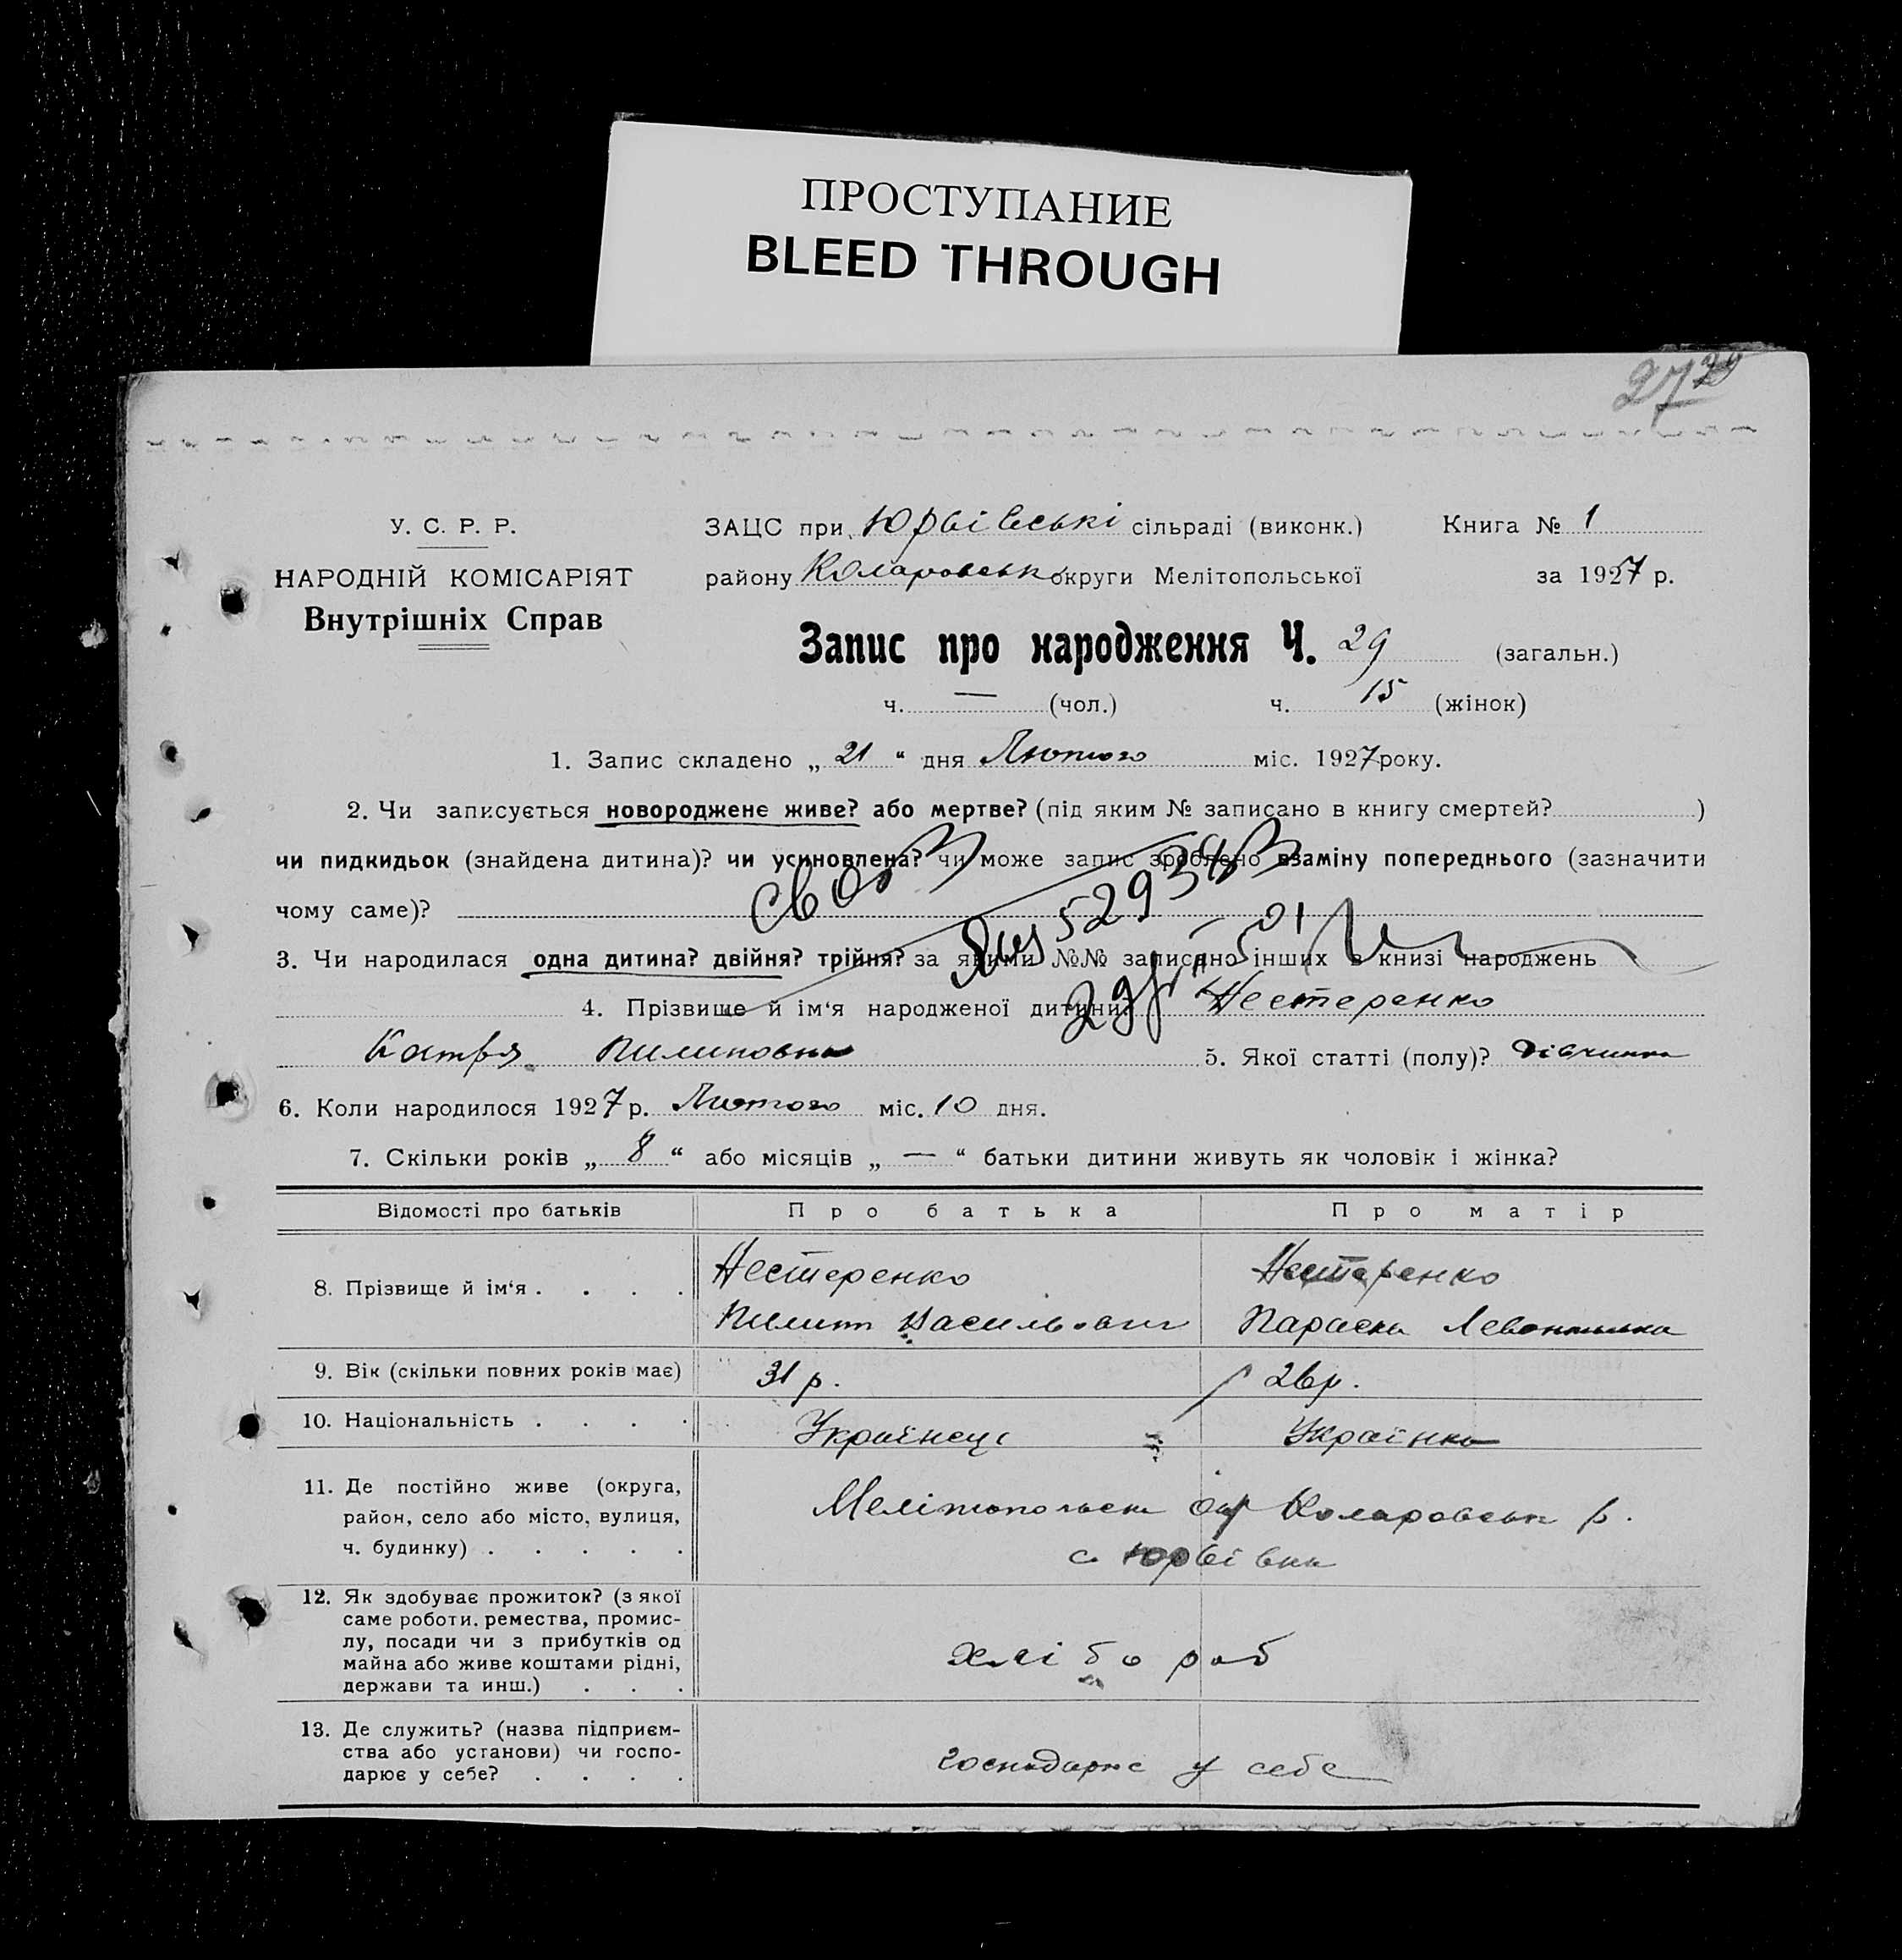 ПРОСТУПАНИЕ
BLEED THROUGH
27
У. С. Р. Р.
НАРОДНІЙ КОМІСАРІЯТ
Внутрішніх Справ
ЗАЦС при Юрьівські сільраді (виконк.) Книга № 1
району Коларовськ округи Мелітопольської за 1927 р.
Запис про народження Ч. 29 (загальн.)
ч. — (чол.) ч. 15 (жінок)
1. Запис складено „ 21 “ дня Лютого міс. 1927 року.
2. Чи записується новороджене живе? або мертве? (під яким № записано в книгу смертей? )
чи пидкидьок (знайдена дитина)? чи усиновлена? чи може запис зроблено взаміну попереднього (зазначити
чому саме)?
3. Чи народилася одна дитина? двійня? трійня? за якими №№ записано інших в книзі народжень
4. Прізвище й ім‘я народженої дитини? Нестеренко
Катря Пилиповна 5. Якої статті (полу)? Дівчинка
6. Коли народилося 1927 р. Лютого міс. 10 дня.
7. Скільки років „ 8 “ або місяців „ — “ батьки дитини живуть як чоловік і жінка?
Відомості про батьків Про батька Про матір
8. Прізвище й ім‘я . . . . Нестеренко Нестеренко
Пилип Васильович Параска
9. Вік (скільки повних років має) 31 р. 26 р.
10. Національність . . . . Українець Українка
11. Де постійно живе (округа,
район, село або місто, вулиця,
ч. будинку) . . . . .
Мелітопольськ окр Коларовськ р.
с Юрьівка
12. Як здобуває прожиток? (з якої
саме роботи, ремества, промис-
лу, посади чи з прибутків од
майна або живе коштами рідні,
держави та инш.) . . .
хлібороб
13. Де служить? (назва підприєм-
ства або установи) чи госпо-
дарює у себе? . . . .
господарює у себе